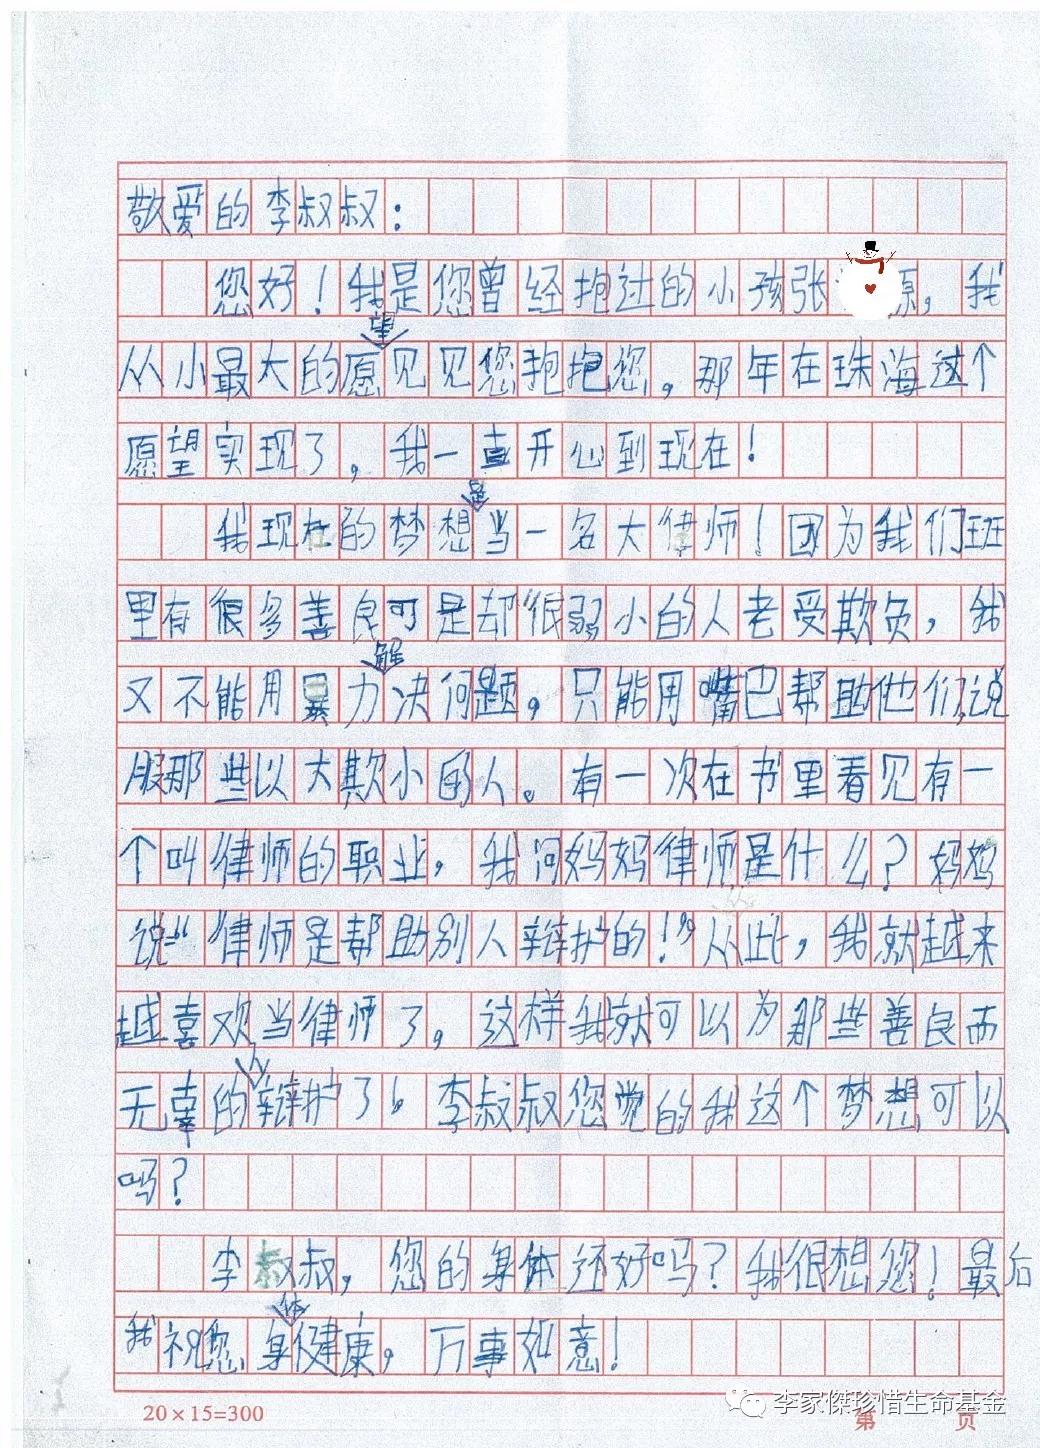 敬爱的李叔叔：
您好！我是您曾经抱过的小孩张 原，我
从小最大的愿望见见您抱抱您，那年在珠海这个
愿望实现了，我一直开心到现在！
我现在的梦想是当一名大律师！因为我们班
里有很多善良可是却很弱小的人老受欺负，我
又不能用暴力解决问题，只能用嘴巴帮助他们，说
服那些以大欺小的人。有一次在书里看见有一
个叫律师的职业，我问妈妈律师是什么？妈妈
说：“律师是帮助别人辩护的！”从此，我就越来
越喜欢当律师了，这样我就可以为那些善良而
无辜的人辩护了。李叔叔您觉的我这个梦想可以
吗？
李叔叔，您的身体还好吗？我很想您！最后
我祝您身体健康，万事如意！
20×15=300
第 页
李家傑珍惜生命基金